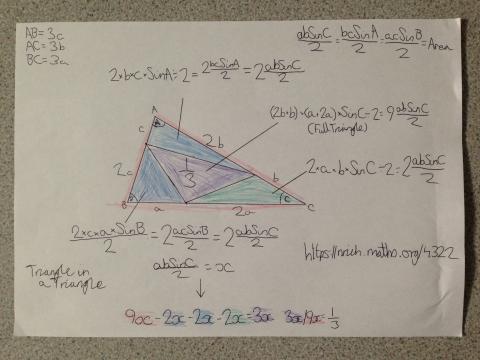 AB=3c
AC=3b
BC=3a
abSinC/2 = bcSinA/2 = acSinB/2 = Area
2×b×c×SinA÷2=2bcSinA/2=2abSinC/2
(2b+b)×(a+2a)×SinC÷2=9abSinC/2
(Full Triangle)
A
A
c
2b
1/3
2×a×b×SinC÷2=2abSinC/2
2c
b
B
B
a
2a
C
C
2×c×a×SinB/2=2acSinB/2=2abSinC/2
https://nrich.maths.org/4322
Triangle in
a Triangle
abSinC/2=x
9x-2x-2x-2x=3x 3x/9x=1/3